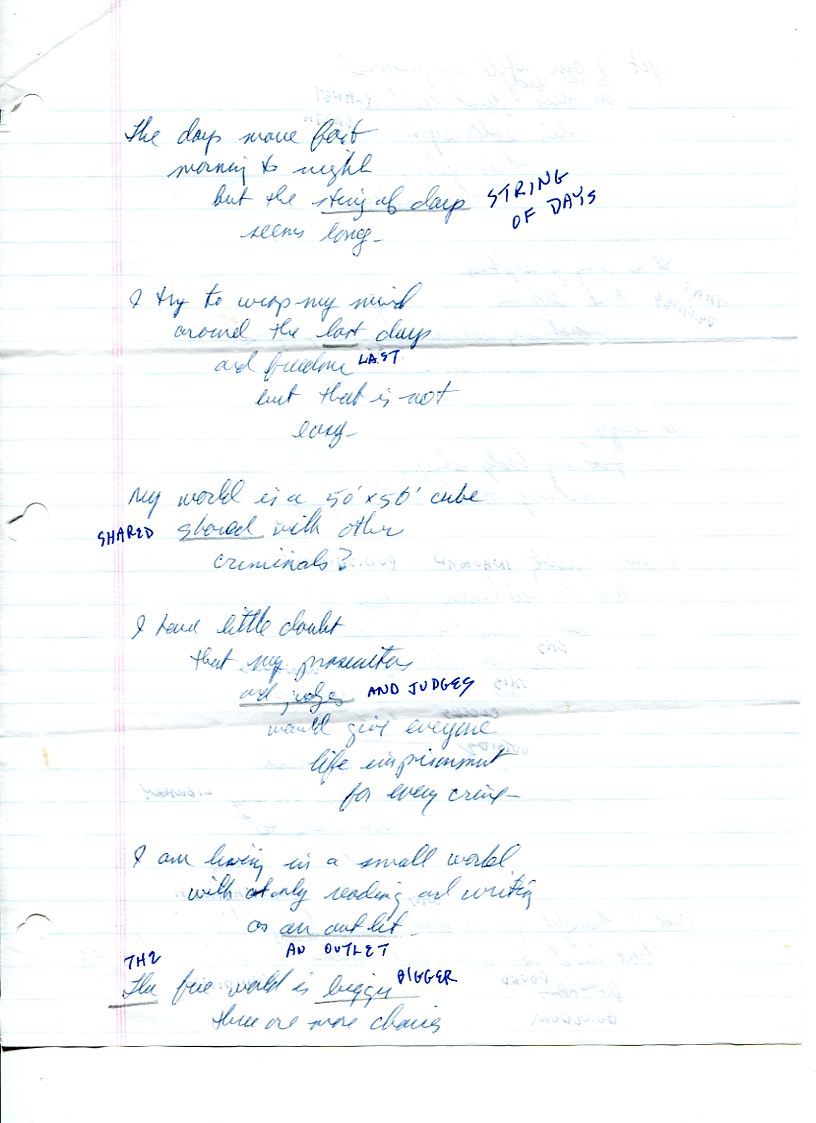 The days move fast
morning to night
but the string of days STRING
OF DAYS
seems long-
I try to wrap my mind
around the last days
and freedom LAST
but that is not
easy-
My world is a 50' x 50' cube
SHARED shared with other
criminals?
I have little doubt
that my prosecutors
and judges AND JUDGES
would give everyone
life imprisonment
for every crime-
I am living in a small world
with only reading and writing
as an outlet.
AN OUTLET
THE
The free world is bigger BIGGER
there are more choices